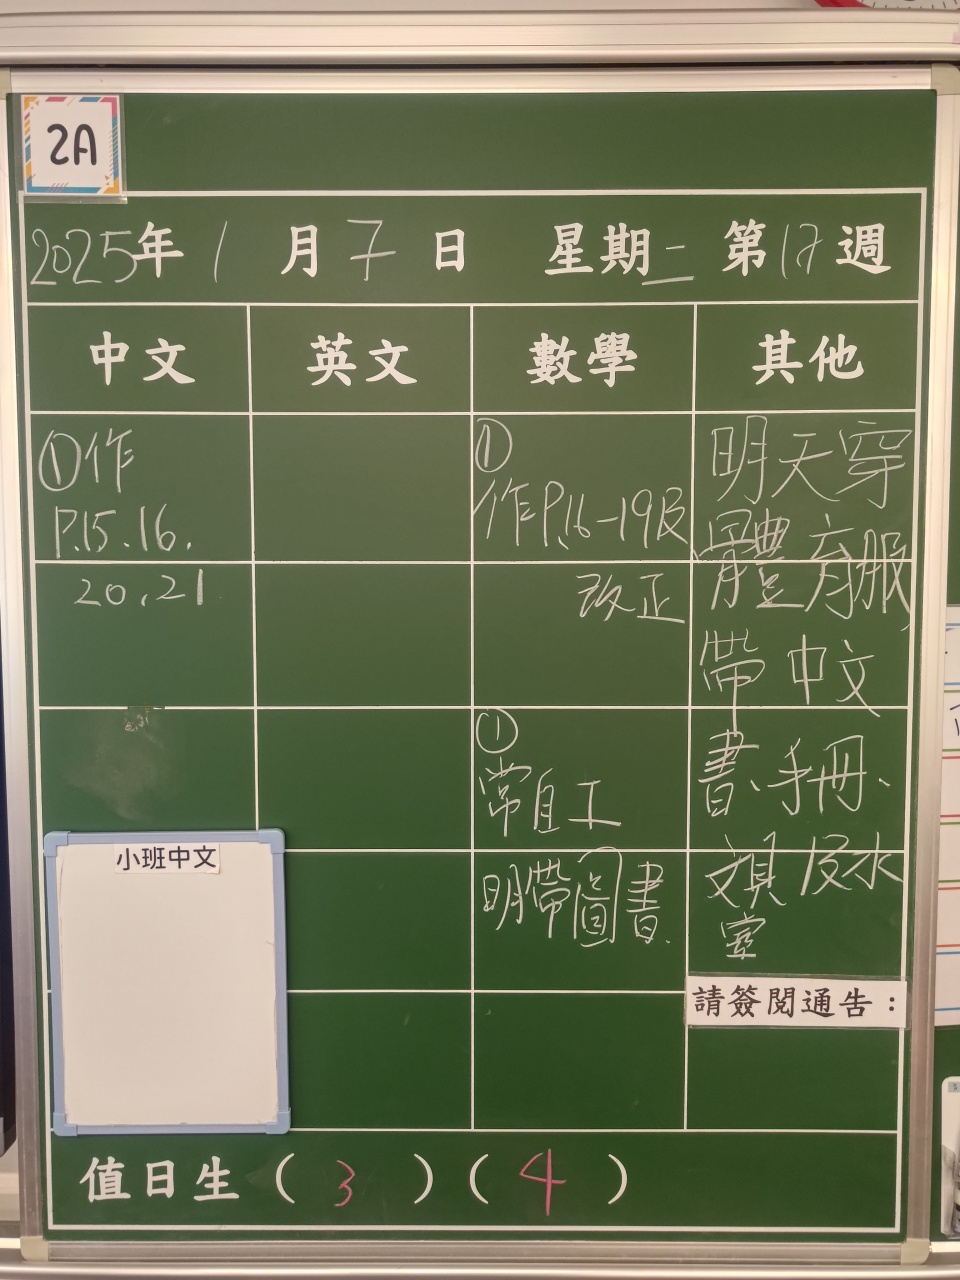 2A
2025年 1 月 7 日 星期二 第17週
中文 英文 數學 其他
①作
P.15.16.
20.21
小班中文
①
作P.16-19及
改正
①
常自工
明帶圖書.
明天穿
體育服,
帶中文
書、手冊、
文具及水
壺
請簽閱通告：
值日生（3）（4）